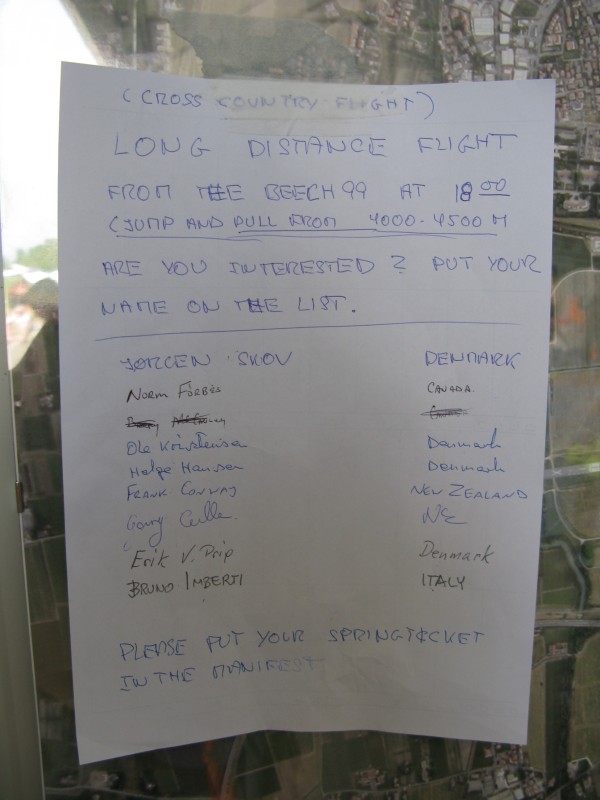 (CROSS COUNTRY FLIGHT)
LONG DISTANCE FLIGHT
FROM THE BEECH 99 AT 18 00
(JUMP AND PULL FROM 4000-4500 M
ARE YOU INTERESTED? PUT YOUR
NAME ON THE LIST.
JORGEN SKOV DENMARK
NORM FORBES CANADA
Ole Kristensen Danmark
Helge Hansen Denmark
FRANK CONWAY NEW ZEALAND
Gary
Erik V. Prip Denmark
BRUNO IMBERTI ITALY
PLEASE PUT YOUR SPRINGTICKET
IN THE MANIFEST